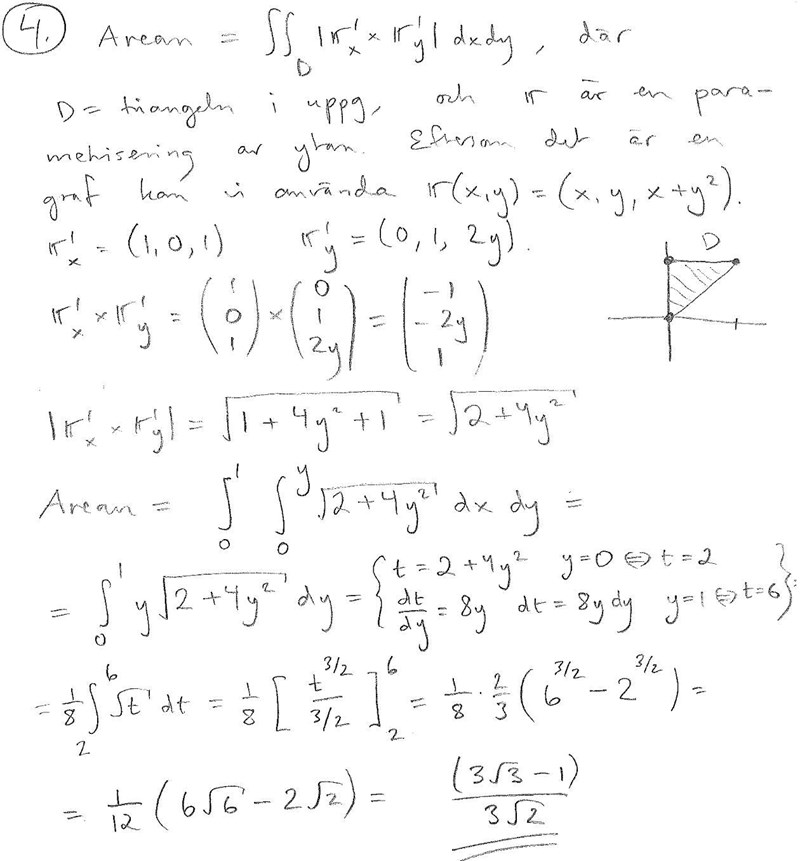 4. Arean = ∬_D |r'_x × r'_y| dxdy, där
D = triangeln i uppg, och r är en para-
metrisering av ytan. Eftersom det är en
graf kan vi använda r(x,y) = (x, y, x+y²).
r'_x = (1, 0, 1) r'_y = (0, 1, 2y).
D
r'_x × r'_y = (1 0 1) × (0 1 2y) = (-1 -2y 1)
|r'_x × r'_y| = √(1 + 4y² + 1) = √(2 + 4y²)
Arean = ∫_0^1 ∫_0^y √(2 + 4y²) dx dy =
= ∫_0^1 y√(2 + 4y²) dy = { t = 2 + 4y² y=0 ⇔ t=2 dt/dy = 8y dt = 8y dy y=1 ⇔ t=6 } =
= 1/8 ∫_2^6 √t dt = 1/8 [ t^{3/2} / 3/2 ]_2^6 = 1/8 · 2/3 (6^{3/2} − 2^{3/2}) =
= 1/12 (6√6 − 2√2) = (3√3 − 1) / 3√2